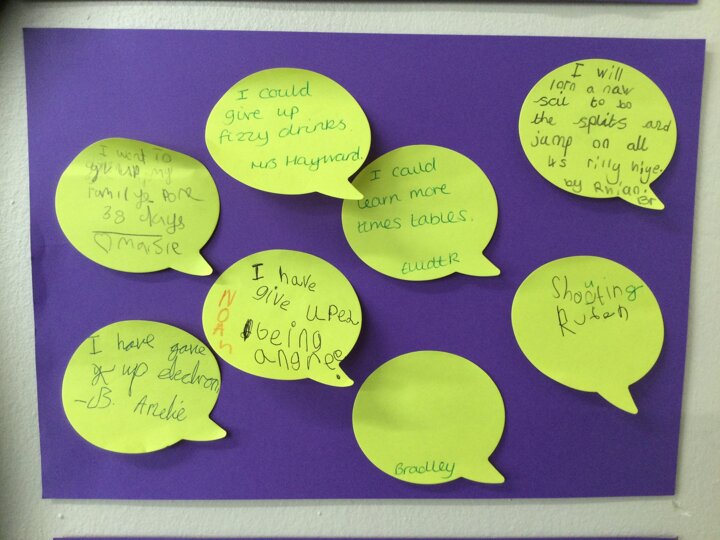 I could
give up
fizzy drinks.
Mrs Hayward.
I will
lorn a naw
to bo
the splits and
jump on all
4s rilly hige.
by Rhian
Br
I want To
give up my
38 days
Maisie
I could
learn more
times tables.
I have
give uped
being
angree.
NOAh
Shouting
Ruben
I have gave
up electron
Amelie
Bradley